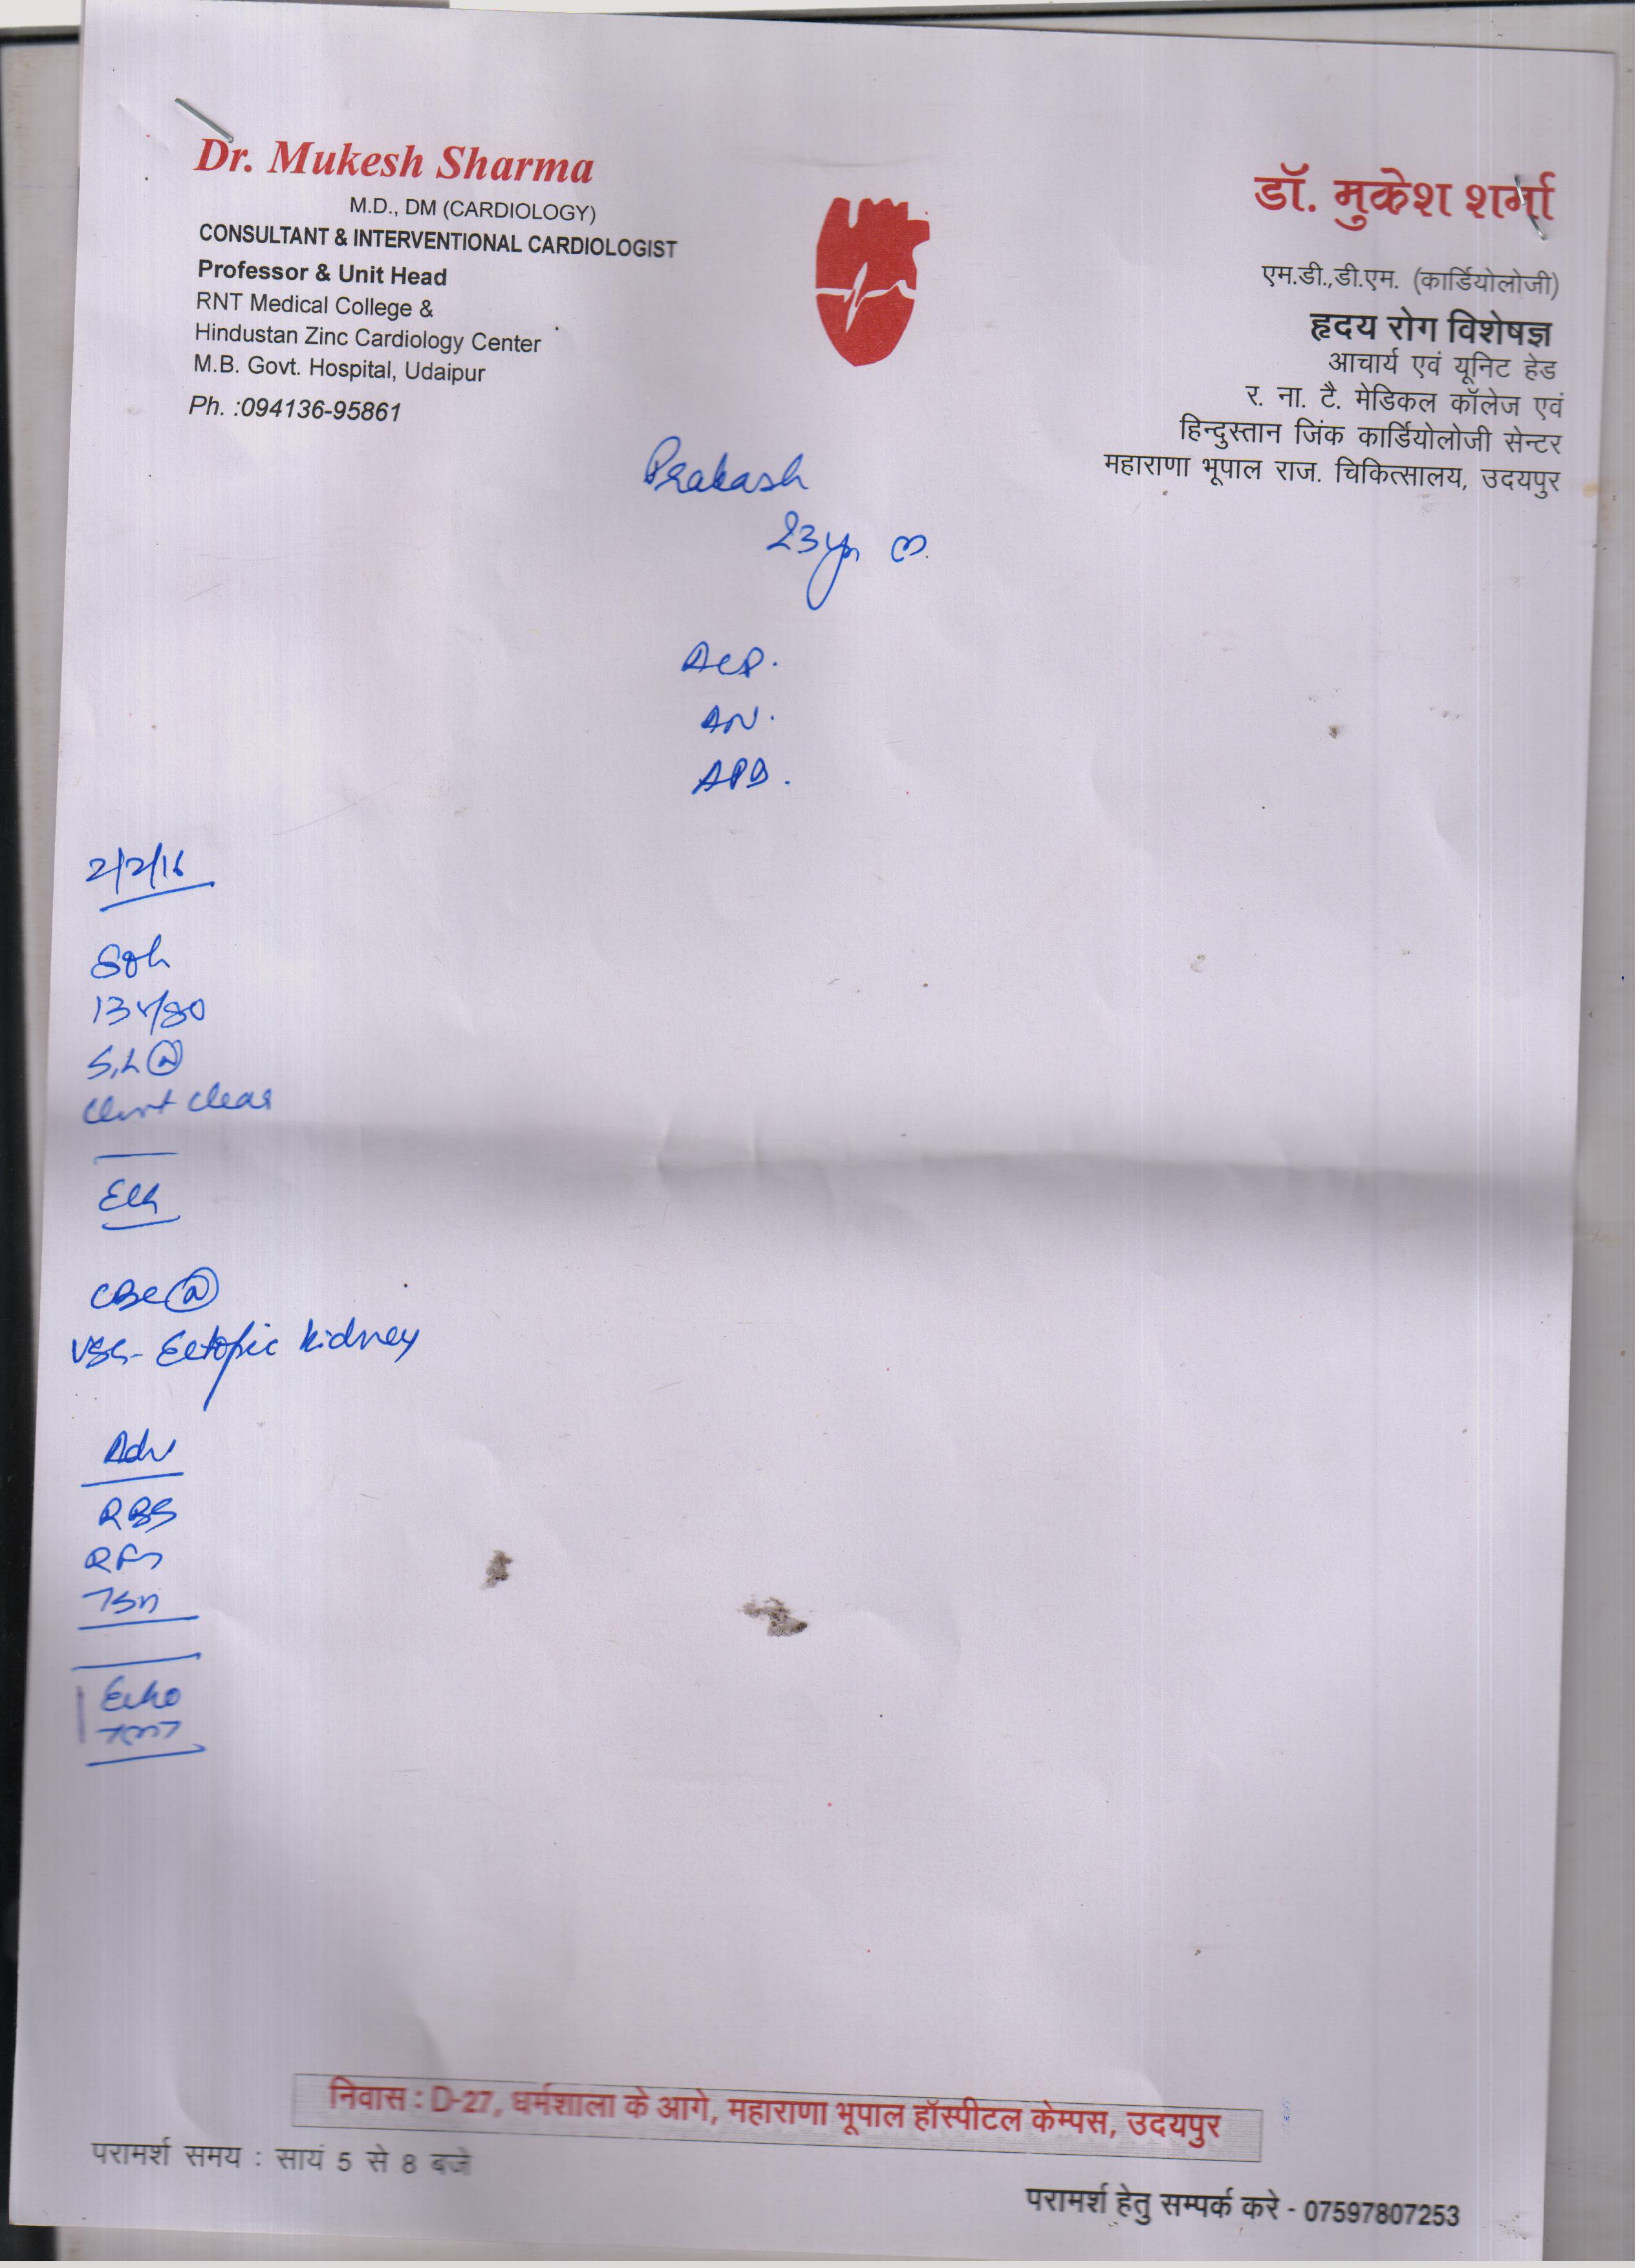 Dr. Mukesh Sharma
M.D., DM (CARDIOLOGY)
CONSULTANT & INTERVENTIONAL CARDIOLOGIST
Professor & Unit Head
RNT Medical College &
Hindustan Zinc Cardiology Center
M.B. Govt. Hospital, Udaipur
Ph. :094136-95861
डॉ. मुकेश शर्मा
एम.डी.,डी.एम. (कार्डियोलोजी)
हृदय रोग विशेषज्ञ
आचार्य एवं यूनिट हेड
र. ना. टै. मेडिकल कॉलेज एवं
हिन्दुस्तान जिंक कार्डियोलोजी सेन्टर
महाराणा भूपाल राज. चिकित्सालय, उदयपुर
Prakash
23 yr M.
AN.
2/2/16
S,L (N)
Chest clear
CBC (N)
USG- Ectopic kidney
Adv
RBS
RFT
TSH
Echo
TMT
निवास : D-27, धर्मशाला के आगे, महाराणा भूपाल हॉस्पीटल केम्पस, उदयपुर
परामर्श समय : सायं 5 से 8 बजे
परामर्श हेतु सम्पर्क करे - 07597807253